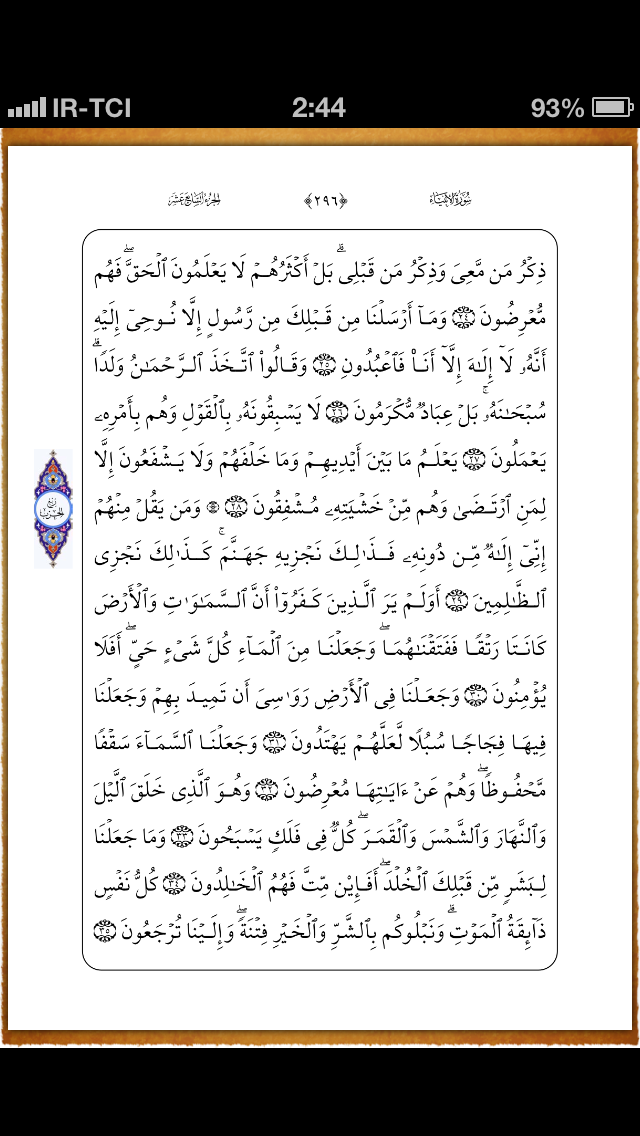 IR-TCI 2:44 93%
سُورَةُ الأَنبِيَاءِ ﴿٢٩٦﴾ الجُزءُ السَّابِعَ عَشَرَ
ذِكۡرُ مَن مَّعِىَ وَذِكۡرُ مَن قَبۡلِىۗ بَلۡ أَكۡثَرُهُمۡ لَا يَعۡلَمُونَ ٱلۡحَقَّۖ فَهُم
مُّعۡرِضُونَ ٢٤ وَمَآ أَرۡسَلۡنَا مِن قَبۡلِكَ مِن رَّسُولٍ إِلَّا نُوحِىٓ إِلَيۡهِ
أَنَّهُۥ لَآ إِلَٰهَ إِلَّآ أَنَا۠ فَٱعۡبُدُونِ ٢٥ وَقَالُوا۟ ٱتَّخَذَ ٱلرَّحۡمَٰنُ وَلَدًاۗ
سُبۡحَٰنَهُۥۚ بَلۡ عِبَادٌ مُّكۡرَمُونَ ٢٦ لَا يَسۡبِقُونَهُۥ بِٱلۡقَوۡلِ وَهُم بِأَمۡرِهِۦ
يَعۡمَلُونَ ٢٧ يَعۡلَمُ مَا بَيۡنَ أَيۡدِيهِمۡ وَمَا خَلۡفَهُمۡ وَلَا يَشۡفَعُونَ إِلَّا
لِمَنِ ٱرۡتَضَىٰ وَهُم مِّنۡ خَشۡيَتِهِۦ مُشۡفِقُونَ ٢٨ ۞ وَمَن يَقُلۡ مِنۡهُمۡ
رُبع الحزب
إِنِّىٓ إِلَٰهٌ مِّن دُونِهِۦ فَذَٰلِكَ نَجۡزِيهِ جَهَنَّمَۚ كَذَٰلِكَ نَجۡزِى
ٱلظَّٰلِمِينَ ٢٩ أَوَلَمۡ يَرَ ٱلَّذِينَ كَفَرُوٓا۟ أَنَّ ٱلسَّمَٰوَٰتِ وَٱلۡأَرۡضَ
كَانَتَا رَتۡقًا فَفَتَقۡنَٰهُمَاۖ وَجَعَلۡنَا مِنَ ٱلۡمَآءِ كُلَّ شَىۡءٍ حَىٍّۖ أَفَلَا
يُؤۡمِنُونَ ٣٠ وَجَعَلۡنَا فِى ٱلۡأَرۡضِ رَوَٰسِىَ أَن تَمِيدَ بِهِمۡ وَجَعَلۡنَا
فِيهَا فِجَاجًا سُبُلًا لَّعَلَّهُمۡ يَهۡتَدُونَ ٣١ وَجَعَلۡنَا ٱلسَّمَآءَ سَقۡفًا
مَّحۡفُوظًاۖ وَهُمۡ عَنۡ ءَايَٰتِهَا مُعۡرِضُونَ ٣٢ وَهُوَ ٱلَّذِى خَلَقَ ٱلَّيۡلَ
وَٱلنَّهَارَ وَٱلشَّمۡسَ وَٱلۡقَمَرَۖ كُلٌّ فِى فَلَكٍ يَسۡبَحُونَ ٣٣ وَمَا جَعَلۡنَا
لِبَشَرٍ مِّن قَبۡلِكَ ٱلۡخُلۡدَۖ أَفَإِي۟ن مِّتَّ فَهُمُ ٱلۡخَٰلِدُونَ ٣٤ كُلُّ نَفۡسٍ
ذَآئِقَةُ ٱلۡمَوۡتِۗ وَنَبۡلُوكُم بِٱلشَّرِّ وَٱلۡخَيۡرِ فِتۡنَةًۖ وَإِلَيۡنَا تُرۡجَعُونَ ٣٥